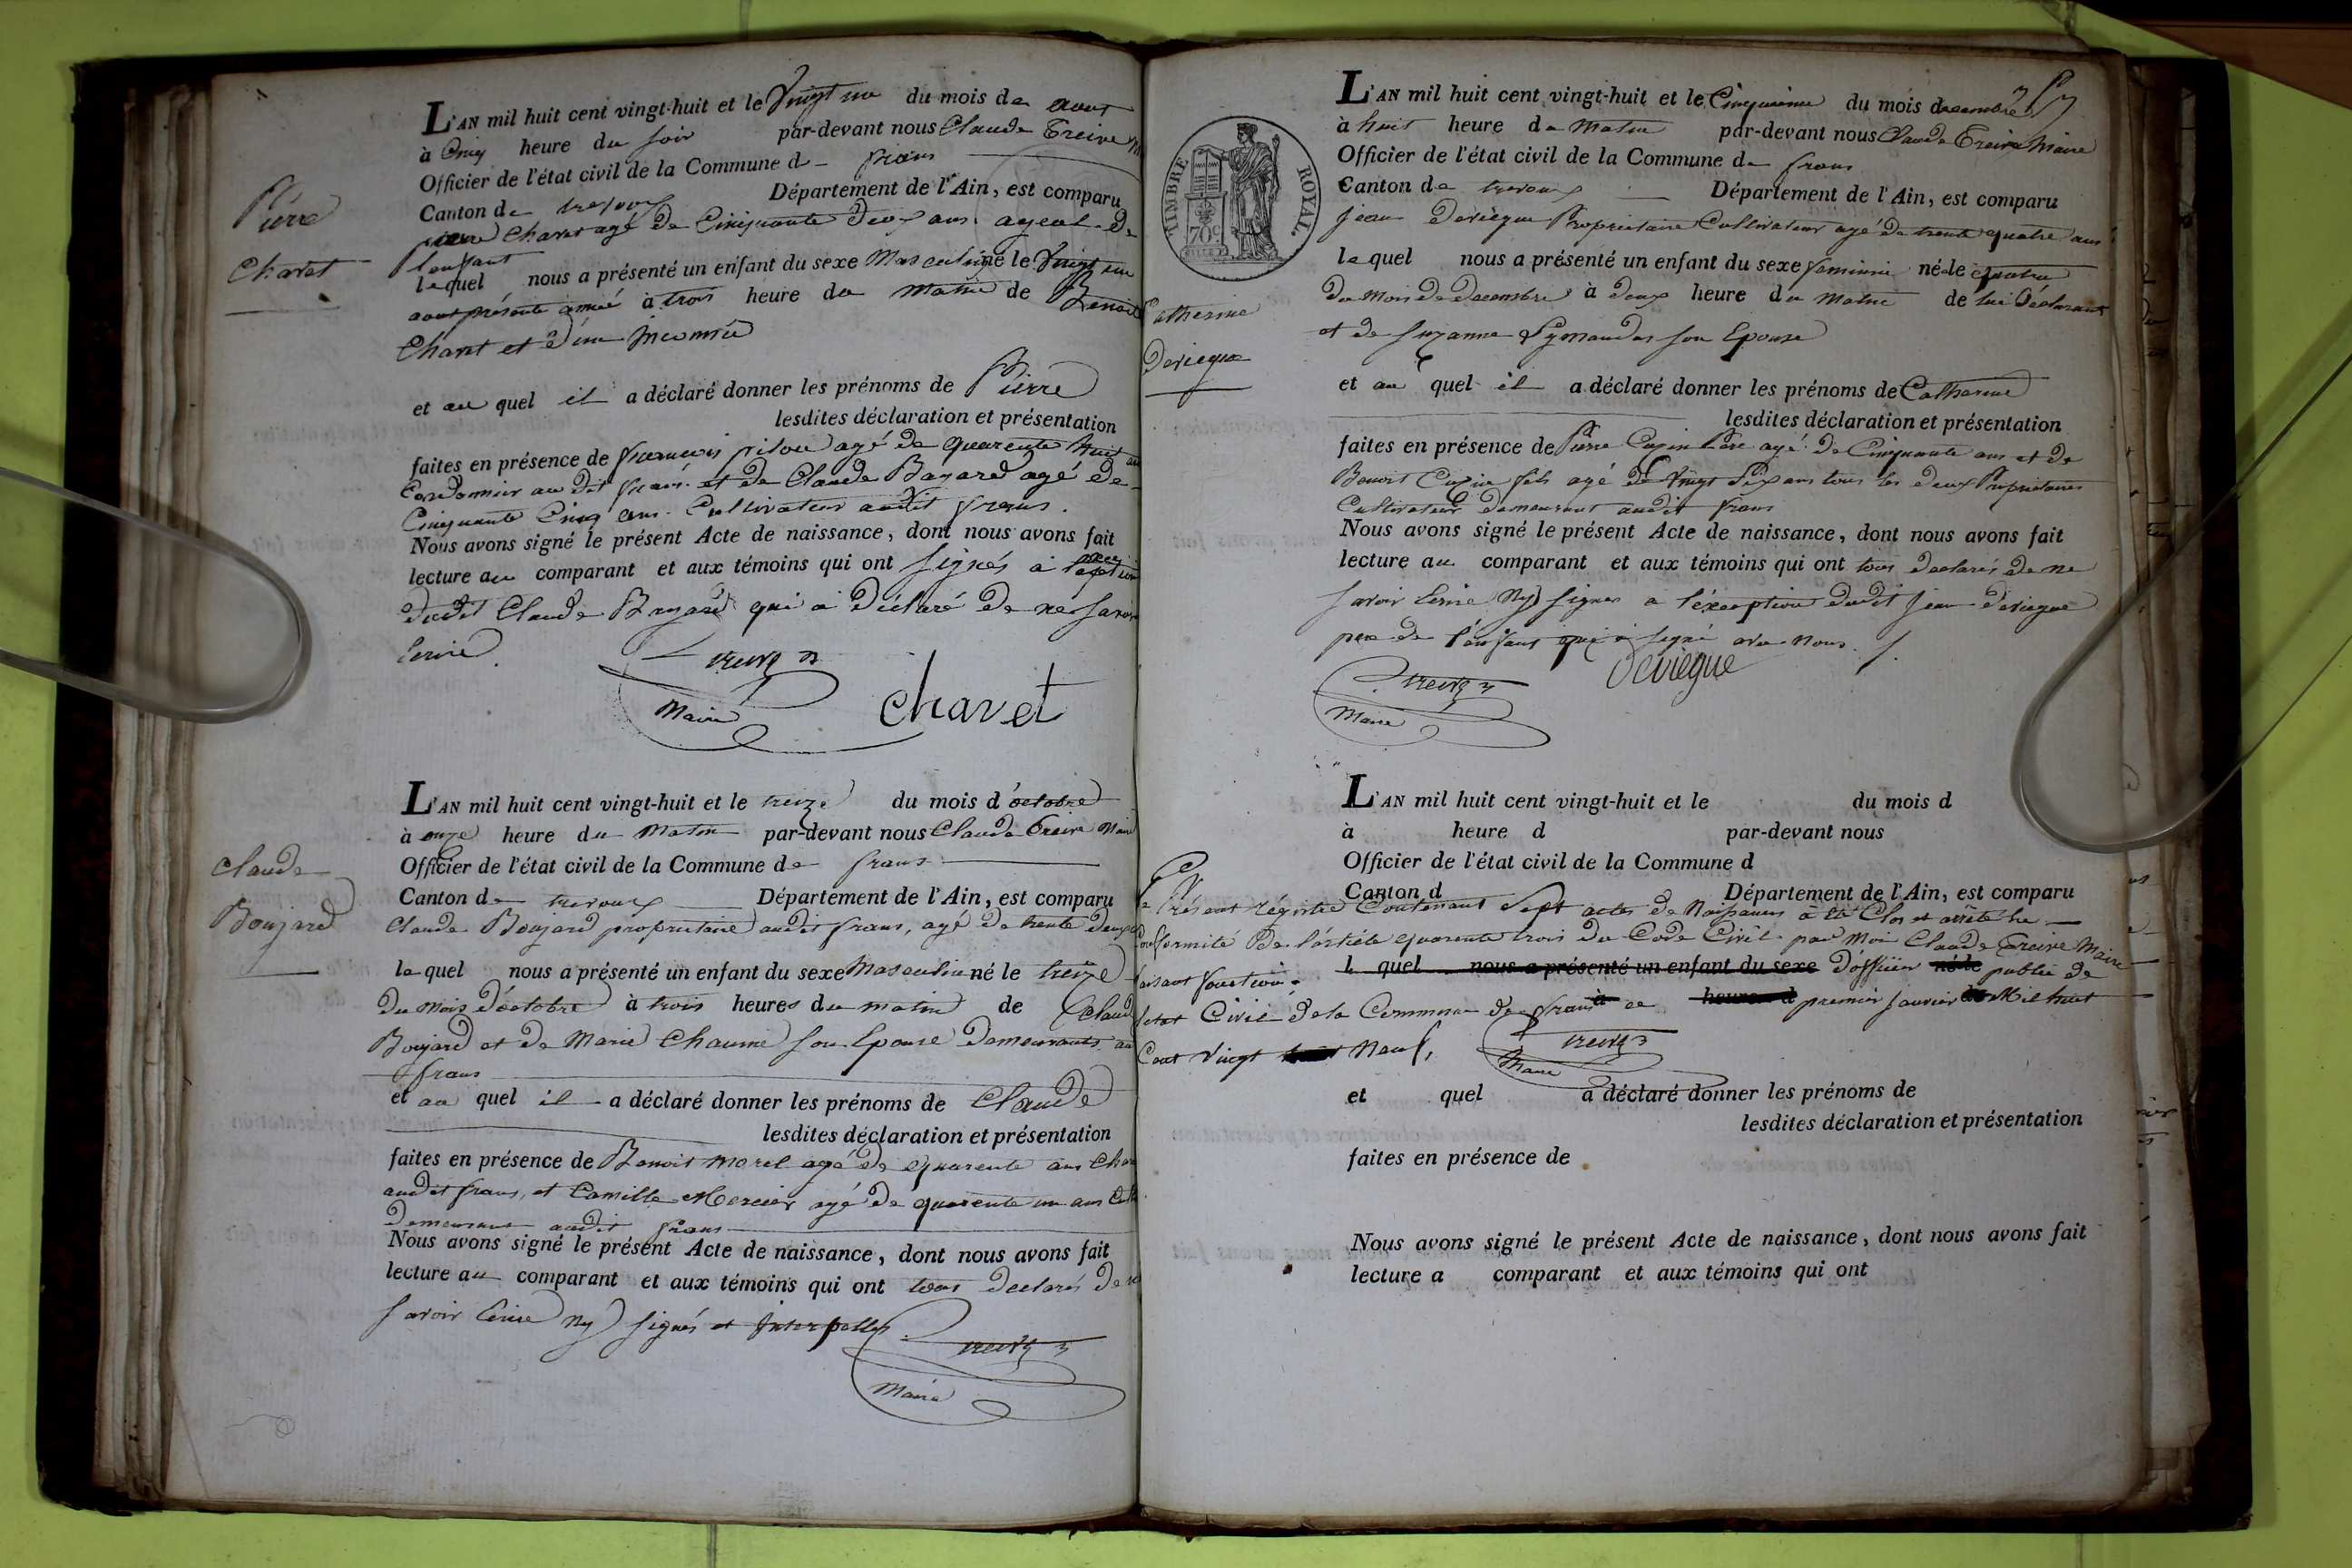 L'AN mil huit cent vingt-huit et le Vingt un du mois de aout
à Cinq heure du soir par-devant nous Claude Treive
Officier de l'état civil de la Commune de frans
Canton de trevoux Département de l'Ain, est comparu
pierre Chavet agé de Cinquante deux ans ayeul de
l'enfant
lequel nous a présenté un enfant du sexe Masculin né le Vingt un
aout présente année à trois heure du matin de Benoit
Chavet et d'une Inconnüe
Pierre
Chavet
et au quel il a déclaré donner les prénoms de Pierre
lesdites déclaration et présentation
faites en présence de francois pitou agé de quarente huit
Cordonnier au dit frans et de Claude Bayard agé de
Cinquante Cinq ans Cultivateur audit frans.
Nous avons signé le présent Acte de naissance, dont nous avons fait
lecture au comparant et aux témoins qui ont signés à
dudit Claude Bayard qui a déclaré de ne savoir
Ecrire.
treive
Maire
Chavet
L'AN mil huit cent vingt-huit et le treize du mois d'octobre
à onze heure du Matin par-devant nous Claude Treive Maire
Officier de l'état civil de la Commune de frans
Canton de trevoux Département de l'Ain, est comparu
Claude Boujard proprietaire audit frans, agé de trente deux
Claude
Boujard
lequel nous a présenté un enfant du sexe Masculin né le treize
du mois d'octobre à trois heures du matin de Claude
Boujard et de Marie Chaume son Epouse Demeurants au
frans
et au quel il a déclaré donner les prénoms de Claude
lesdites déclaration et présentation
faites en présence de Benoit Morel agé de quarente ans
audit frans, et Camille Mercier agé de quarente un ans
Demeurant audit frans
Nous avons signé le présent Acte de naissance, dont nous avons fait
lecture au comparant et aux témoins qui ont tous declarés de
savoir Ecrire Ny signés et Interpellés.
treive
Maire
L'AN mil huit cent vingt-huit et le Cinquieme du mois decembre
à huit heure de Matin par-devant nous Claude Treive Maire
Officier de l'état civil de la Commune de frans
Canton de trevoux Département de l'Ain, est comparu
jean Deriegue Proprietaire Cultivateur agé de trente quatre ans
TIMBRE ROYAL.
70c
lequel nous a présenté un enfant du sexe feminin né le quatre
du Mois de decembre à deux heure du Matin de lui Déclarant
et de Suzanne son Epouse
Catherine
Deriegue
et au quel il a déclaré donner les prénoms de Catherine
lesdites déclaration et présentation
faites en présence de Pierre Cuzin Père agé de Cinquante ans et de
Benoit Cuzin fils agé de Vingt Six ans tous les deux Proprietaires
Cultivateurs demeurant audit frans
Nous avons signé le présent Acte de naissance, dont nous avons fait
lecture au comparant et aux témoins qui ont tous declarés de ne
savoir Ecrire Ny signer a l'exception dudit jean deriegue
pere de l'enfant qui a signé avec nous.
Deriegue
treive
Maire
L'AN mil huit cent vingt-huit et le du mois d
à heure d par-devant nous
Officier de l'état civil de la Commune d
Canton d Département de l'Ain, est comparu
Le Présent régistre Contenant Sept actes de Naissances à été Clos et arrêté
Conformité De l'article quarente trois du Code Civil par Moi Claude Treive Maire
l quel nous a présenté un enfant du sexe né le
faisant fonction d'officier public de
à heures d de
letat Civil de la Commune de frans ce premier janvier Mil huit
Cent Vingt Neuf,
treive
Maire
et quel a déclaré donner les prénoms de
lesdites déclaration et présentation
faites en présence de
Nous avons signé le présent Acte de naissance, dont nous avons fait
lecture a comparant et aux témoins qui ont